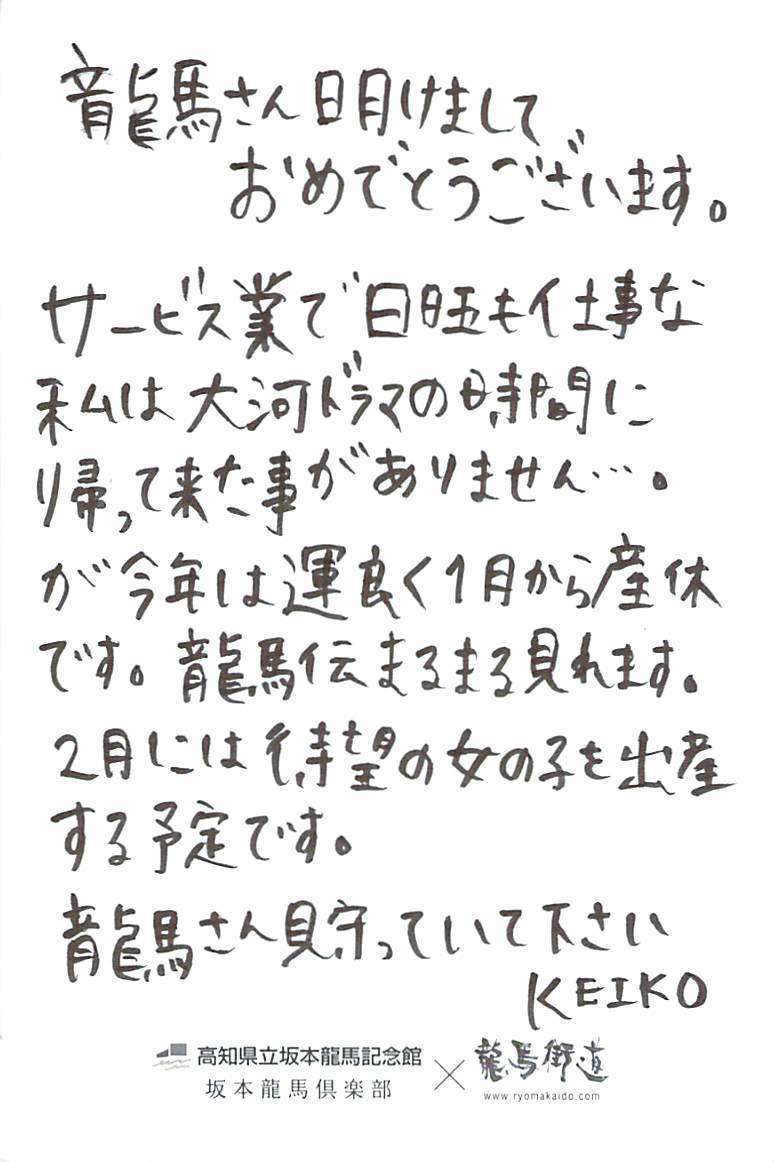 龍馬さん明けまして
おめでとうございます。
サービス業で日曜も仕事な
私は大河ドラマの時間に
帰って来た事がありません…。
が今年は運良く1月から産休
です。龍馬伝まるまる見れます。
2月には待望の女の子を出産
する予定です。
龍馬さん見守っていて下さい
KEIKO
高知県立坂本龍馬記念館
坂本龍馬倶楽部
×
龍馬街道
www.ryomakaido.com